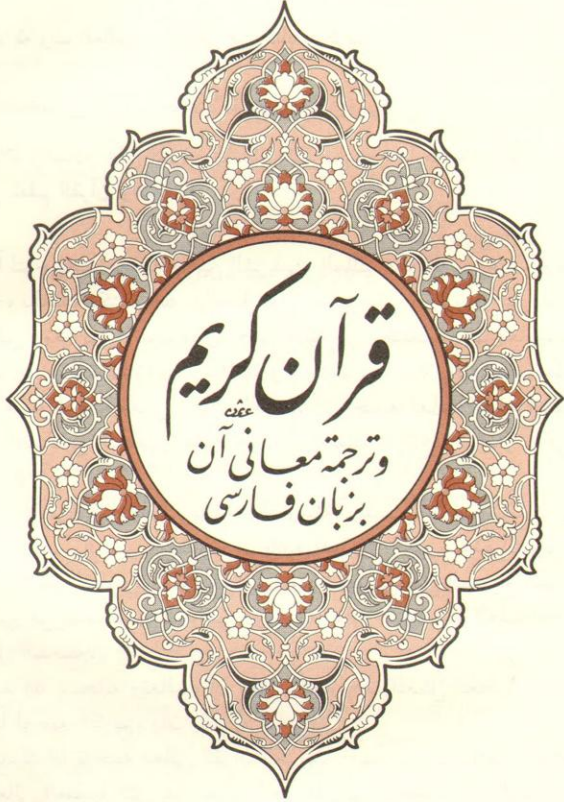 قرآن کریم
وترجمۀ معانی آن
بزبان فارسی